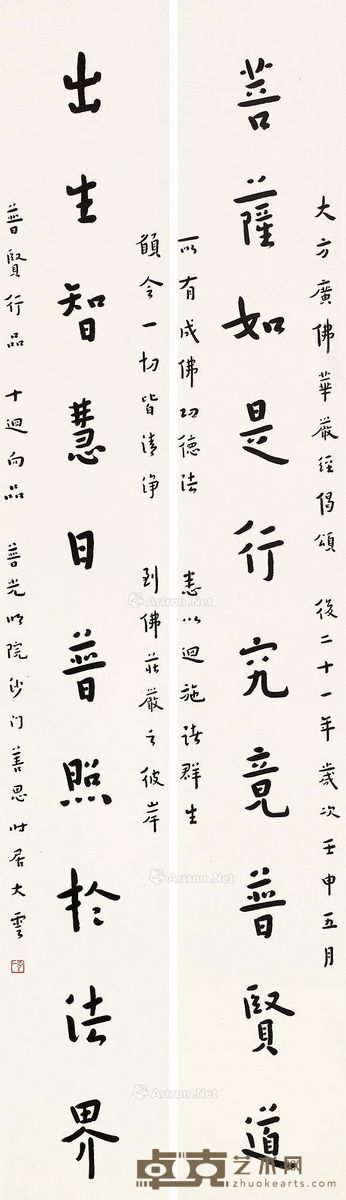 大方廣佛華嚴經偈頌 後二十一年歲次壬申五月
菩薩如是行究竟普賢道
所有成佛功德法 悉以迴施諸群生
願令一切皆清淨 到佛莊嚴之彼岸
出生智慧日普照於法界
普賢行品 十迴向品 普光明院沙门善思时居大雲
Artron.Net
Artron.Net
Artron.Net
卓克艺术网
zhuokearts.com